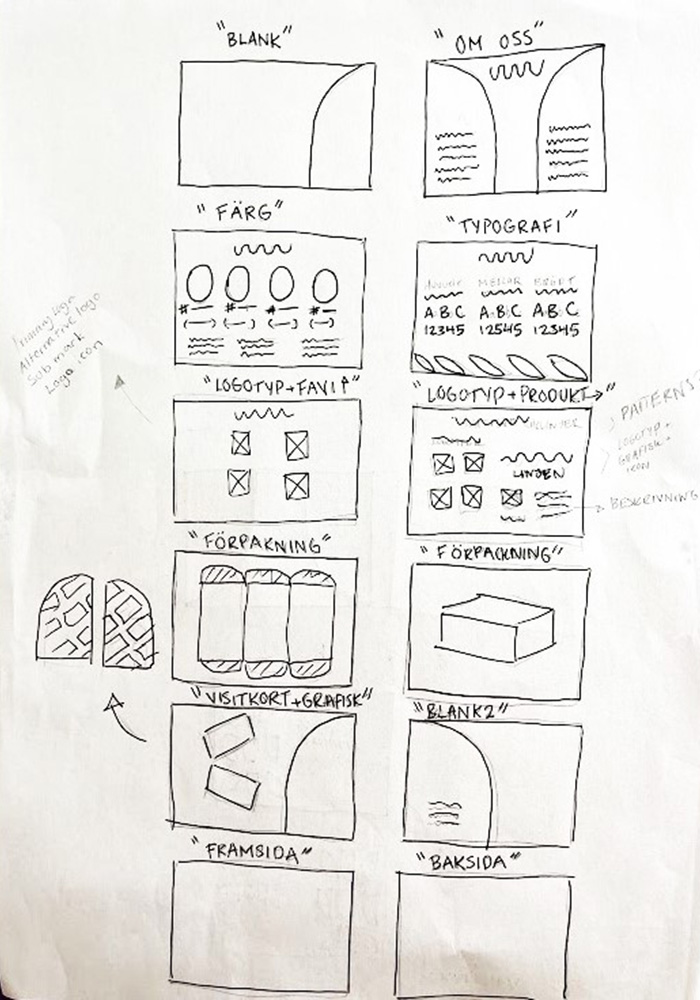 "BLANK"
"OM OSS"
"FÄRG"
"TYPOGRAFI"
#
#
#
#
MELLAR
BRÖDT
A·B·C
A·B·C
A·B·C
12345
12545
12345
Primary logo
Alternative logo
Sub mark
Logo icon
"LOGOTYP+FAVI
"LOGOTYP+PRODUKT→"
LINJEN
PATTERNS?
LOGOTYP+
GRAFISK+
IKON
BESKRIVNING
"FÖRPAKNING"
"FÖRPACKNING"
"VISITKORT+GRAFISK"
"BLANK2"
"FRAMSIDA"
"BAKSIDA"